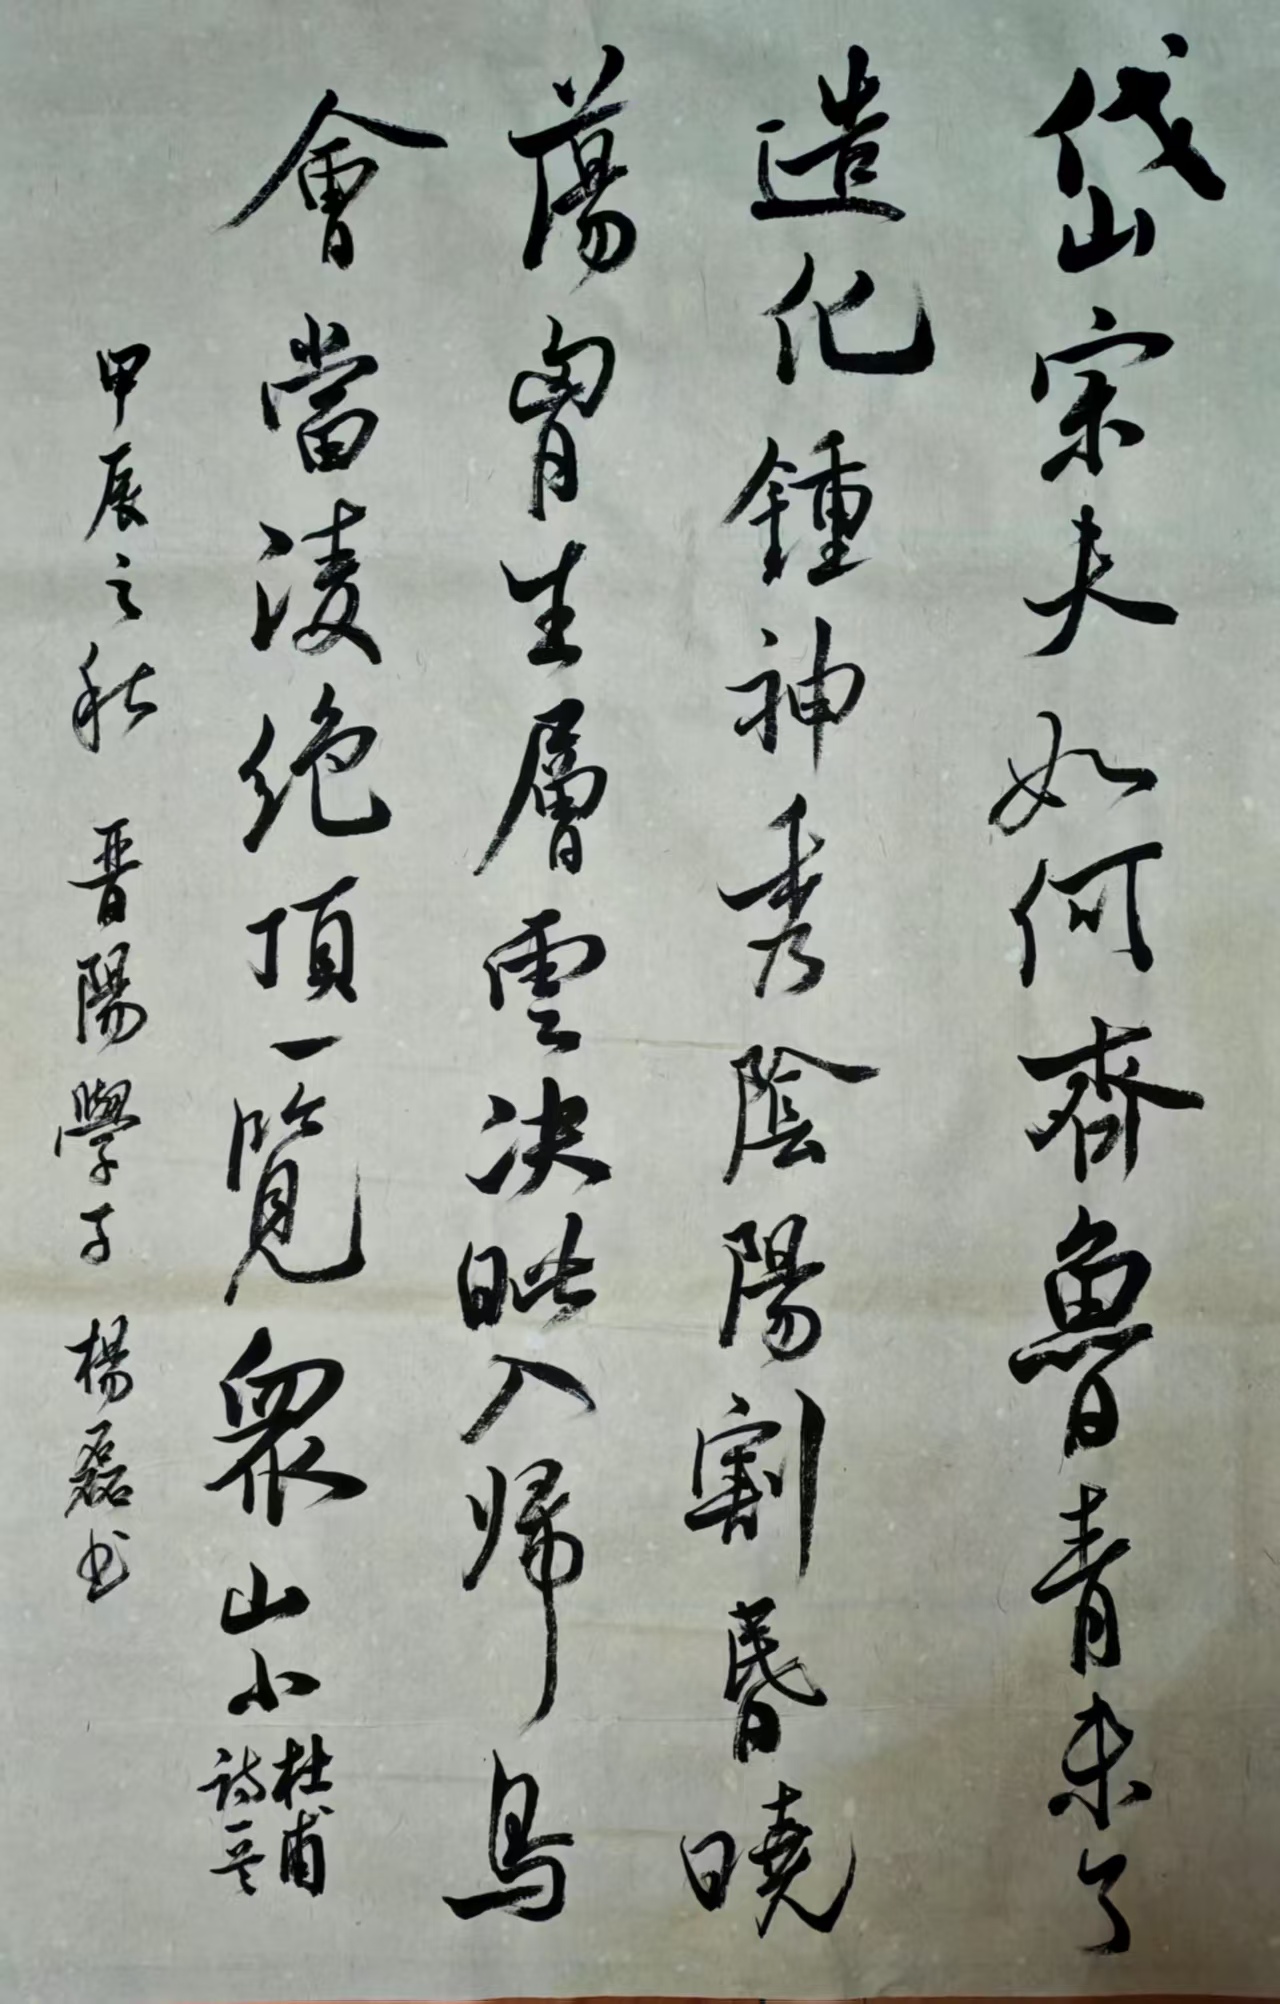 岱宗夫如何齊魯青未了
造化鍾神秀陰陽割昬曉
蕩胷生層雲決眦入帰鳥
會當淩絶頂一覽衆山小
杜甫
诗一首
甲辰之秋 晋陽學子 楊磊书